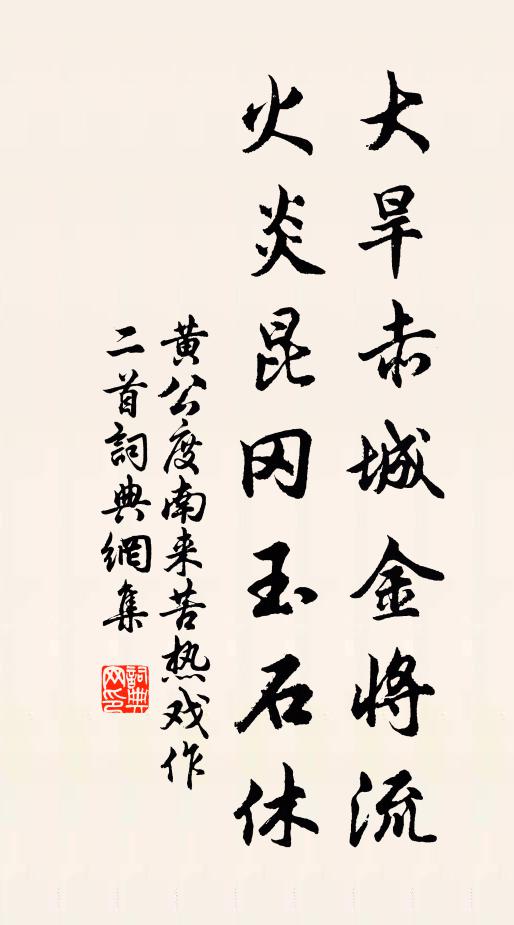 大旱赤城金将流
火炎昆冈玉石休
黄公度南来苦热戏作
二首詞典網集
詞典
网印